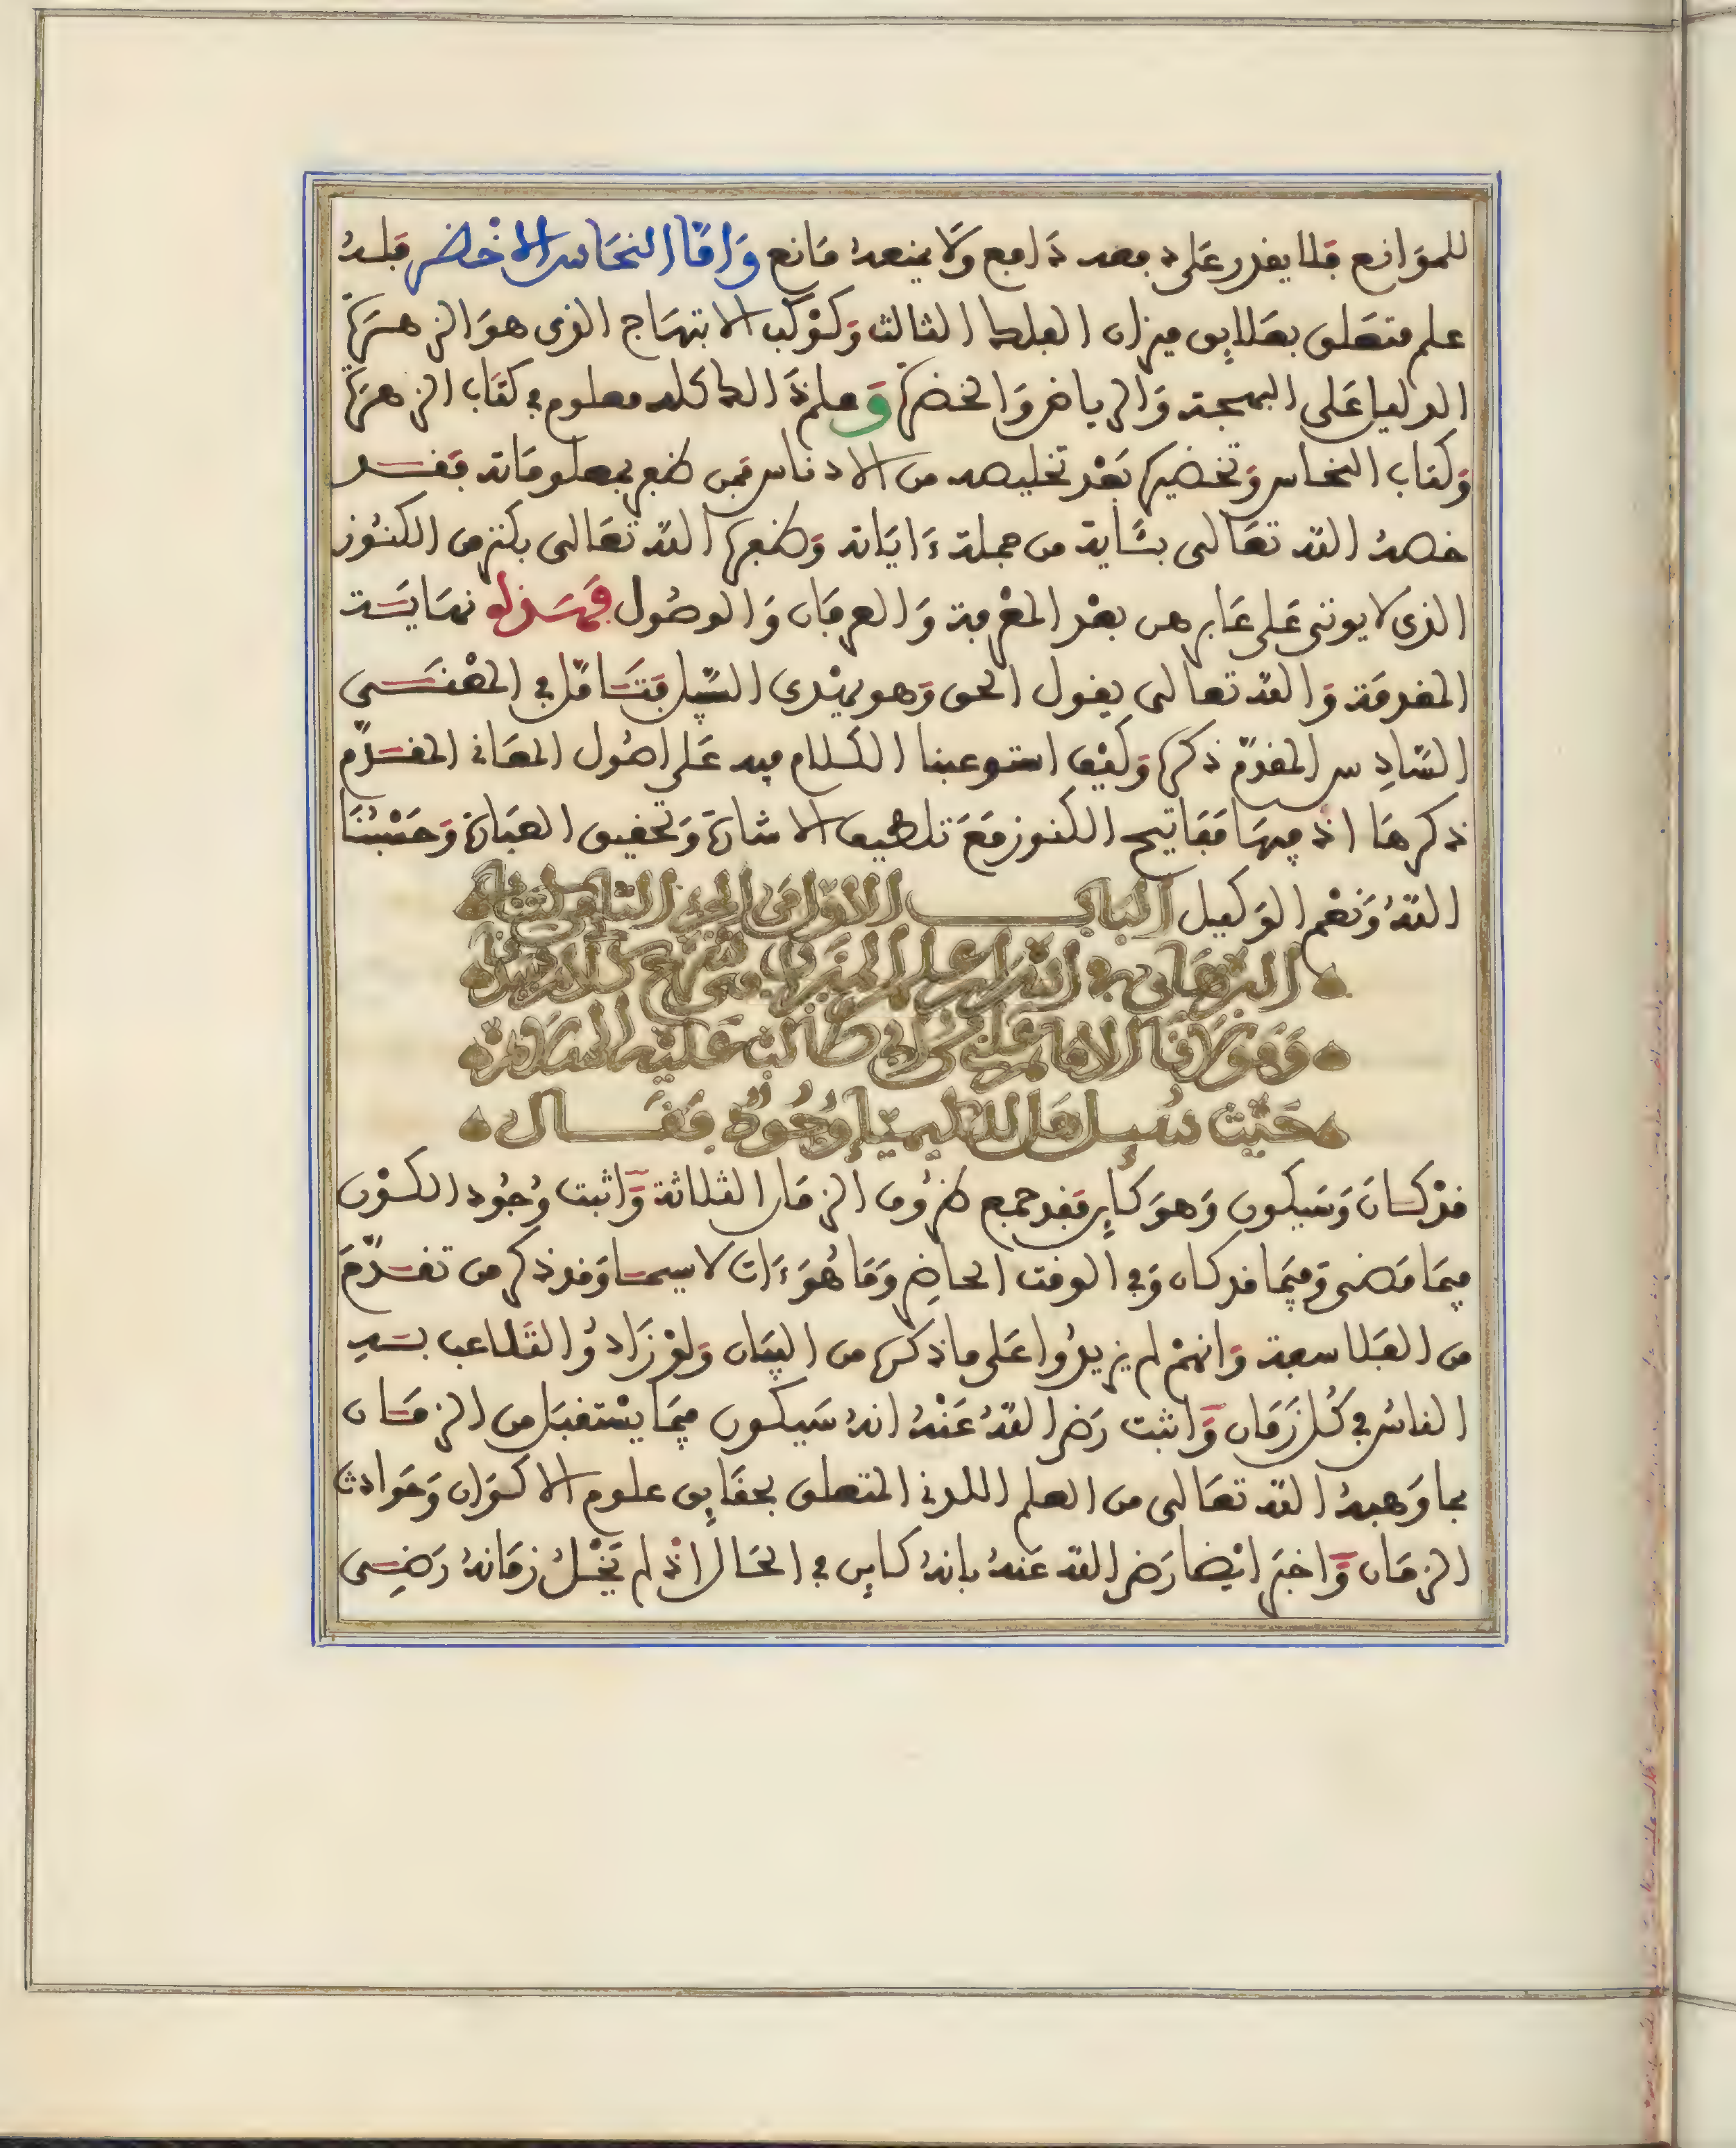 للموانع فلا يقدر على دفعه دافع ولا يمنعه مانع وَامّا النحَاس الاخْضر فلهُ
علم متعلق بعلايق ميزان الفلك الثالث وَكوْكب الابتهاج الذى هوَ الزهرة
الدليل على البهجة وَالرياض وَالخضرة وَعلم ذَالك كله معلوم في كتاب الزهرة
وَكتاب النحاس وَتخضيره بَعْد تخليصه من الادناس فمن ظفر بمعلوماته فقد
خصهُ الله تعَالى بئاية من جملة ءَايَاته وَظفره الله تعَالى بكنز من الكنُوز
الذى لا يوتى على عَابر من بعْد المعْرفة وَالعرفان وَالوصُول فهَذه نهايَة
المقدمَة وَالله تعالى يقول الحق وَهو يهْدى السّبيل فتَامّل في المعْنَى
السّادِس المقدّم ذكره وَكيْف استوعبنا الكلام فيه عَلى اصُول المعَاني المقدّم
ذكرهَا اذ فيهَا مَفَاتيح الكنوز مَعَ تلطيف الاشارة وَتحقيق العبَارة وَحَسْبُنَا
اللهُ وَنعْم الوَكيل البَاب الاوّل من الجزء الثاني من كتاب
البرْهَان في اسْرَار علم الميزَان
وَهوَ قال الامام عَلي بن ابي طَالب عَليْه السّلام
حَيْث سُيل هَل للكيميَا وُجُودٌ فقَال
قدْ كَان وَسَيكون وَهوَ كاين فقد جمع ظرُوف الزمَان الثلاثة وَاثبت وُجُود الكوْن
فيمَا مَضى وَفيمَا قد كان وَفي الوقت الحاضِر وَمَا هُوَ ءَات لا سيما وَقد ذكر من تقدّمَ
من الفَلاسفة وَانهمْ لم يزيدُوا على ما ذكره من البيَان وَلوْ زَادُوا لتَلاعب بهِ
الناسُ في كُل زَمَان وَاثبت رَضي اللهُ عَنْهُ انهُ سَيكون فيمَا يسْتقبَل من الزمَان
بما وَهبهُ الله تعَالى من العلم اللدني المتعلق بحقَايِق علوم الاكوَان وَحَوادث
الزمَان وَاخبَر ايْضا رَضي الله عَنهُ بانهُ كاين في الحَال اذ لم يَخْلُ زمَانهُ رَضِى